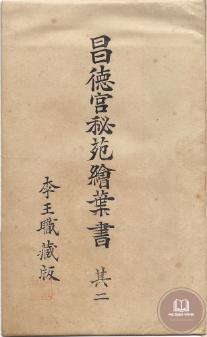 昌德宮秘苑繪葉書
其二
李王職藏版